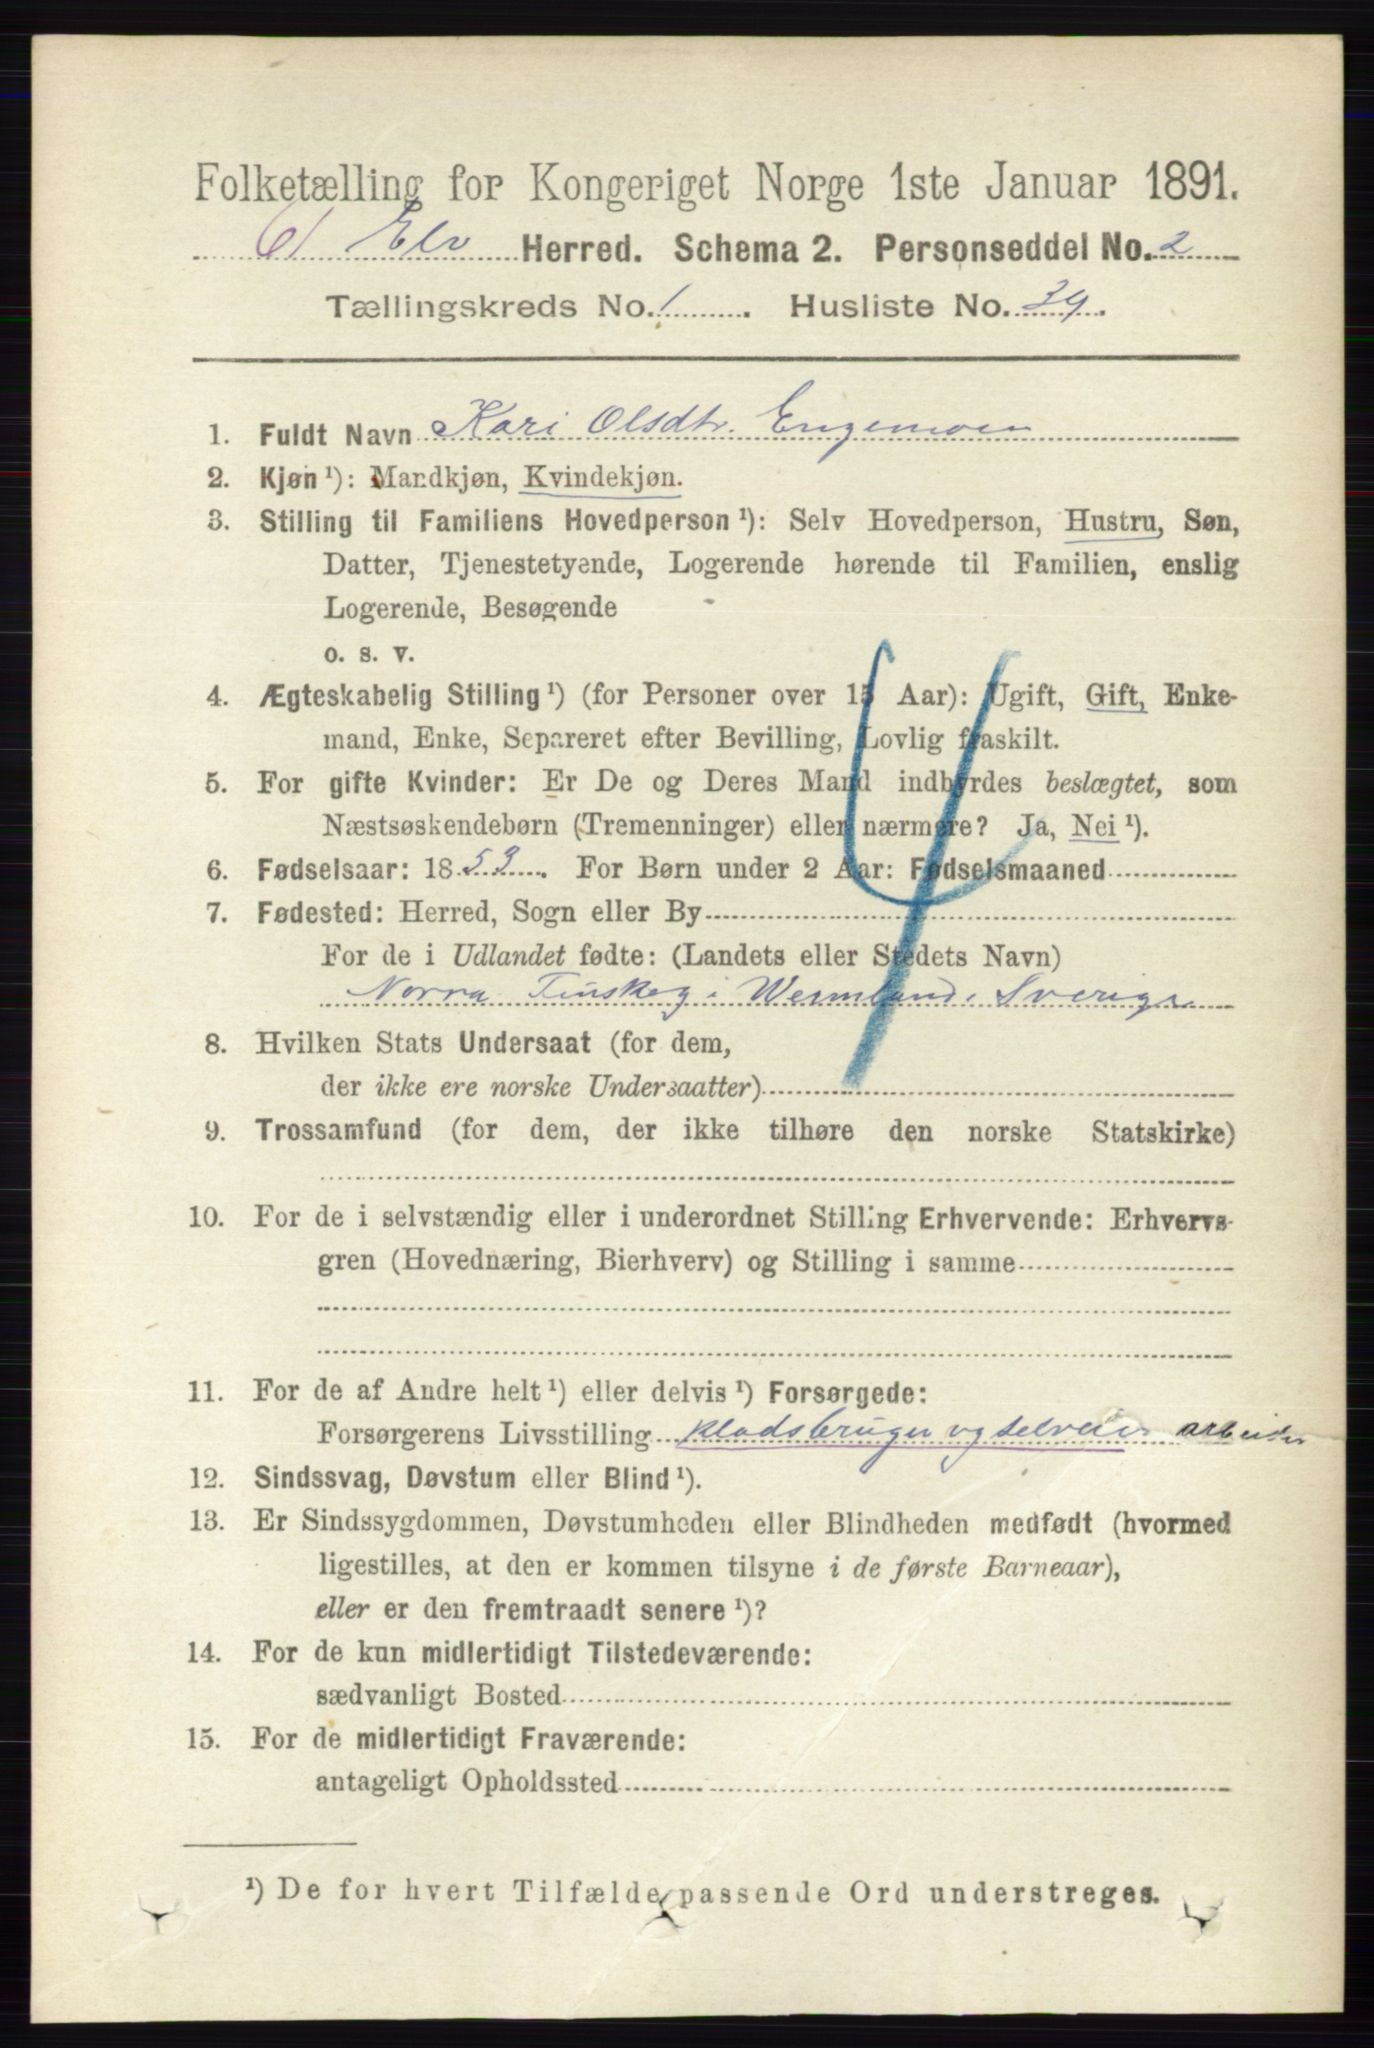 Folketælling for Kongeriget Norge 1ste Januar 1891.
Elv Herred. Schema 2. Personseddel No. 2
Tællingskreds No. 1. Husliste No. 39.
1. Fuldt Navn Kari Olsdtr. Engemoen
2. Kjøn ¹): Mandkjøn, Kvindekjøn.
3. Stilling til Familiens Hovedperson ¹): Selv Hovedperson, Hustru, Søn,
Datter, Tjenestetyende, Logerende hørende til Familien, enslig
Logerende, Besøgende
o. s. v.
4. Ægteskabelig Stilling ¹) (for Personer over 15 Aar): Ugift, Gift, Enke-
mand, Enke, Separeret efter Bevilling, Lovlig fraskilt.
5. For gifte Kvinder: Er De og Deres Mand indbyrdes beslægtet, som
Næstsøskendebørn (Tremenninger) eller nærmere? Ja, Nei ¹).
6. Fødselsaar: 1853. For Børn under 2 Aar: Fødselsmaaned
7. Fødested: Herred, Sogn eller By
For de i Udlandet fødte: (Landets eller Stedets Navn)
Norra Finskog i Wermland, Sverige
8. Hvilken Stats Undersaat (for dem,
der ikke ere norske Undersaatter)
9. Trossamfund (for dem, der ikke tilhøre den norske Statskirke)
10. For de i selvstændig eller i underordnet Stilling Erhvervende: Erhvervs-
gren (Hovednæring, Bierhverv) og Stilling i samme
11. For de af Andre helt ¹) eller delvis ¹) Forsørgede:
Forsørgerens Livsstilling Pladsbruger og selveier arbeider
12. Sindssvag, Døvstum eller Blind ¹).
13. Er Sindssygdommen, Døvstumheden eller Blindheden medfødt (hvormed
ligestilles, at den er kommen tilsyne i de første Barneaar),
eller er den fremtraadt senere ¹)?
14. For de kun midlertidigt Tilstedeværende:
sædvanligt Bosted
15. For de midlertidigt Fraværende:
antageligt Opholdssted
¹) De for hvert Tilfælde passende Ord understreges.